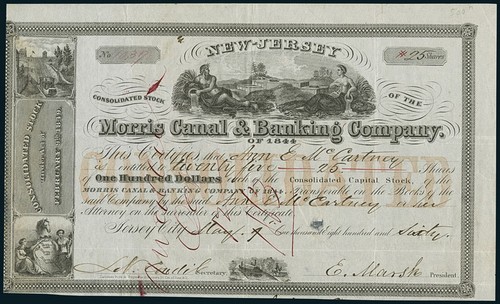 NEW-JERSEY
No.
#25 Shares
CONSOLIDATED STOCK
OF THE
Morris Canal & Banking Company.
OF 1844
CONSOLIDATED STOCK
FEBRUARY 9, 1849.
This Certifies that Ann E. McCartney
is entitled to twenty five 25 Shares
of One Hundred Dollars each of the Consolidated Capital Stock of the
MORRIS CANAL & BANKING COMPANY OF 1844. Transferable on the Books of the
said Company by the said Ann E. McCartney or her
Attorney on the surrender of this Certificate
Jersey City May 9 One thousand Eight hundred and Sixty
Secretary
E. Marsh President